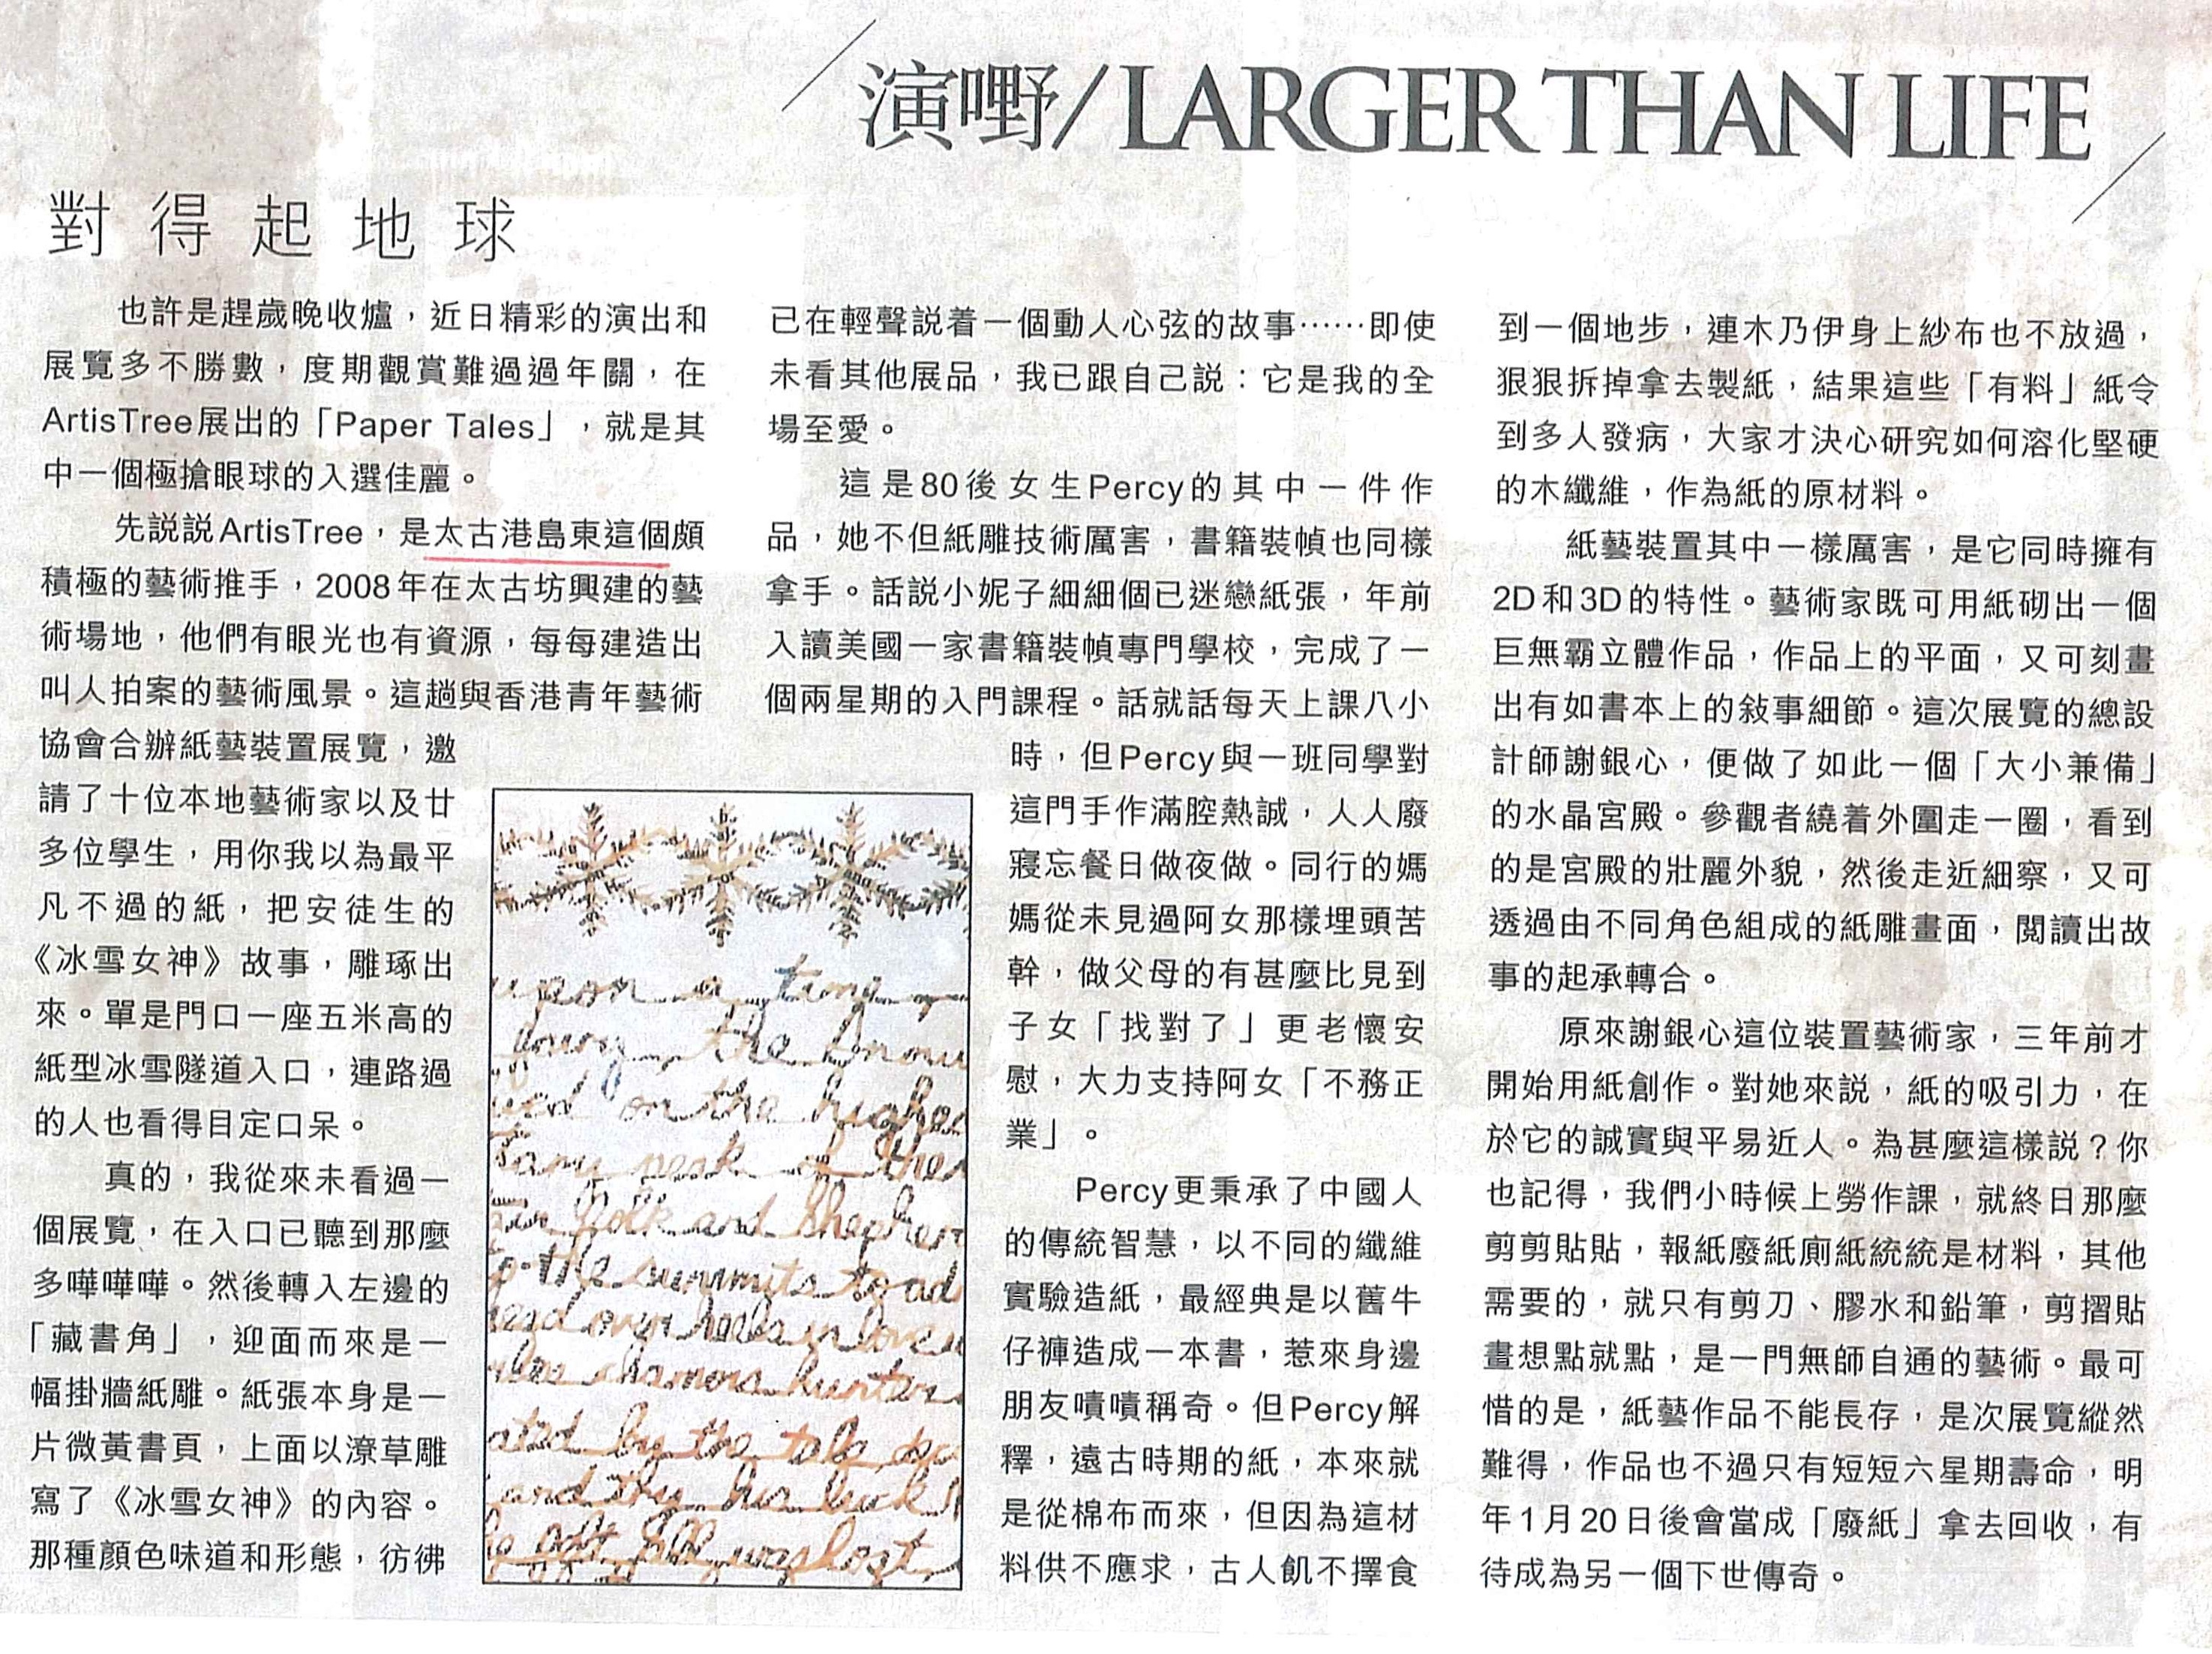 演嘢/LARGER THAN LIFE
對得起地球
也許是趕歲晚收爐，近日精彩的演出和
展覽多不勝數，度期觀賞難過過年關，在
ArtisTree展出的「Paper Tales」，就是其
中一個極搶眼球的入選佳麗。
先説説ArtisTree，是太古港島東這個頗
積極的藝術推手，2008年在太古坊興建的藝
術場地，他們有眼光也有資源，每每建造出
叫人拍案的藝術風景。這趟與香港青年藝術
協會合辦紙藝裝置展覽，邀
請了十位本地藝術家以及廿
多位學生，用你我以為最平
凡不過的紙，把安徒生的
《冰雪女神》故事，雕琢出
來。單是門口一座五米高的
紙型冰雪隧道入口，連路過
的人也看得目定口呆。
真的，我從來未看過一
個展覽，在入口已聽到那麼
多嘩嘩嘩。然後轉入左邊的
「藏書角」，迎面而來是一
幅掛牆紙雕。紙張本身是一
片微黃書頁，上面以潦草雕
寫了《冰雪女神》的內容。
那種顏色味道和形態，彷彿
已在輕聲説着一個動人心弦的故事……即使
未看其他展品，我已跟自己説：它是我的全
場至愛。
這是80後女生Percy的其中一件作
品，她不但紙雕技術厲害，書籍裝幀也同樣
拿手。話説小妮子細細個已迷戀紙張，年前
入讀美國一家書籍裝幀專門學校，完成了一
個兩星期的入門課程。話就話每天上課八小
時，但Percy與一班同學對
這門手作滿腔熱誠，人人廢
寢忘餐日做夜做。同行的媽
媽從未見過阿女那樣埋頭苦
幹，做父母的有甚麼比見到
子女「找對了」更老懷安
慰，大力支持阿女「不務正
業」。
Percy更秉承了中國人
的傳統智慧，以不同的纖維
實驗造紙，最經典是以舊牛
仔褲造成一本書，惹來身邊
朋友嘖嘖稱奇。但Percy解
釋，遠古時期的紙，本來就
是從棉布而來，但因為這材
料供不應求，古人飢不擇食
到一個地步，連木乃伊身上紗布也不放過，
狠狠拆掉拿去製紙，結果這些「有料」紙令
到多人發病，大家才決心研究如何溶化堅硬
的木纖維，作為紙的原材料。
紙藝裝置其中一樣厲害，是它同時擁有
2D和3D的特性。藝術家既可用紙砌出一個
巨無霸立體作品，作品上的平面，又可刻畫
出有如書本上的敍事細節。這次展覽的總設
計師謝銀心，便做了如此一個「大小兼備」
的水晶宮殿。參觀者繞着外圍走一圈，看到
的是宮殿的壯麗外貌，然後走近細察，又可
透過由不同角色組成的紙雕畫面，閲讀出故
事的起承轉合。
原來謝銀心這位裝置藝術家，三年前才
開始用紙創作。對她來説，紙的吸引力，在
於它的誠實與平易近人。為甚麼這樣説？你
也記得，我們小時候上勞作課，就終日那麼
剪剪貼貼，報紙廢紙廁紙統統是材料，其他
需要的，就只有剪刀、膠水和鉛筆，剪摺貼
畫想點就點，是一門無師自通的藝術。最可
惜的是，紙藝作品不能長存，是次展覽縱然
難得，作品也不過只有短短六星期壽命，明
年1月20日後會當成「廢紙」拿去回收，有
待成為另一個下世傳奇。
upon a time
the Snow
on the highes
peak of the
folk and Shepher
the summits to ad
head over heels in love
chamois hunters
by the tale
and thy his luck
was lost